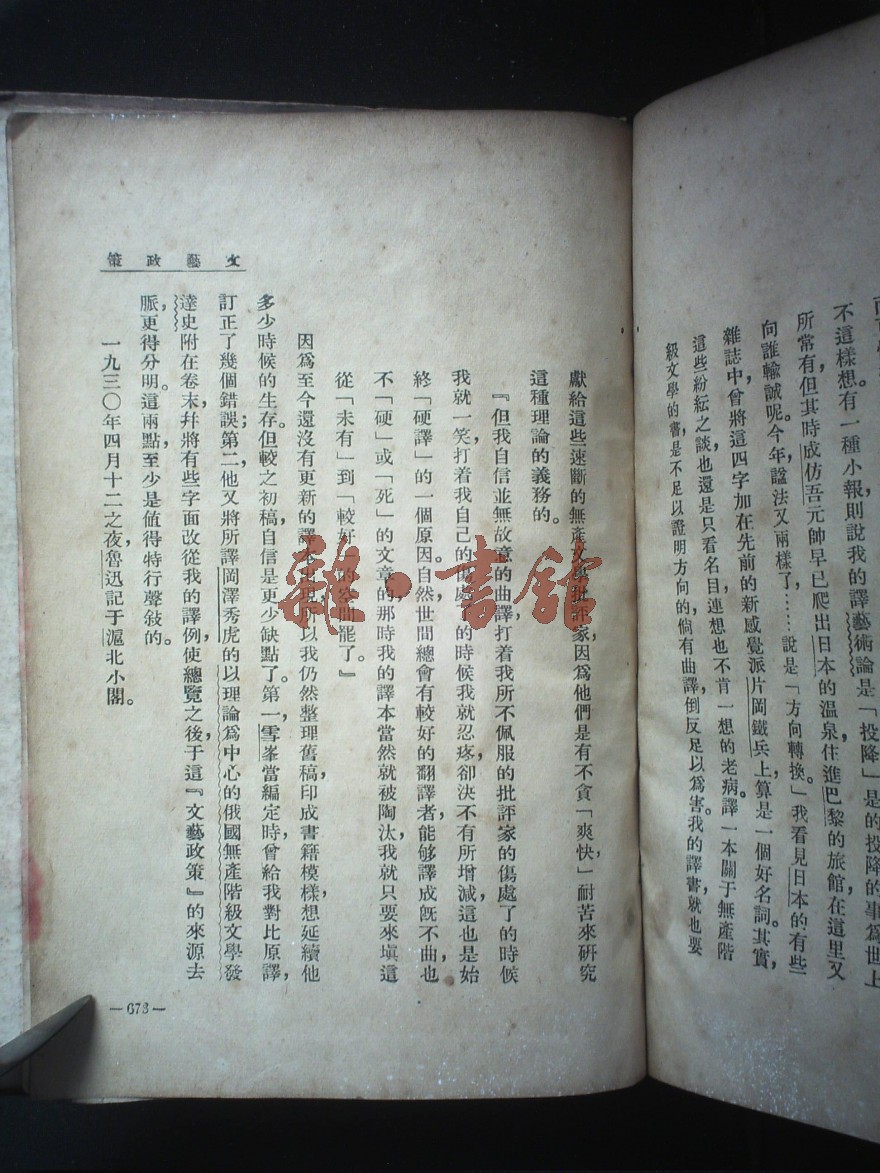 不這樣想。有一種小報則說我的譯藝術論是「投降」是的投降的事爲世上
所常有,但其時成仿吾元帥早已爬出日本的温泉住進巴黎的旅館在這里又
向誰輸誠呢。今年諡法又兩樣了,……說是「方向轉換。」我看見日本的有些
雜誌中曾將這四字加在先前的新感覺派片岡鐵兵上算是一個好名詞。其實,
這些紛紜之談也還是只看名目連想也不肯一想的老病。譯一本關于無產階
級文學的書是不足以證明方向的,倘有曲譯,倒反足以爲害。我的譯書,就也要
獻給這些速斷的無產文學批評家,因爲他們是有不貪「爽快,」耐苦來硏究
這種理論的義務的。
『但我自信並無故意的曲譯,打着我所不佩服的批評家的傷處了的時候
我就一笑,打着我自己的傷處了的時候我就忍疼,卻決不有所增減,這也是始
終「硬譯」的一個原因。自然,世間總會有較好的翻譯者,能够譯成旣不曲,也
不「硬」或「死」的文章的,那時我的譯本當然就被陶汰,我就只要來塡這
從「未有」到「較好」的空間罷了。』
因爲至今還沒有更新的譯本出現,所以我仍然整理舊稿,印成書籍模樣,想延續他
多少時候的生存。但較之初稿,自信是更少缺點了。第一,雪峯當編定時,曾給我對比原譯,
訂正了幾個錯誤;第二,他又將所譯岡澤秀虎的以理論爲中心的俄國無產階級文學發
達史附在卷末,幷將有些字面改從我的譯例,使總覽之後,于這『文藝政策』的來源去
脈,更得分明。這兩點,至少是値得特行聲敍的。
一九三〇年四月十二之夜,魯迅記于滬北小閣。
文藝政策
—673—
雜·書館